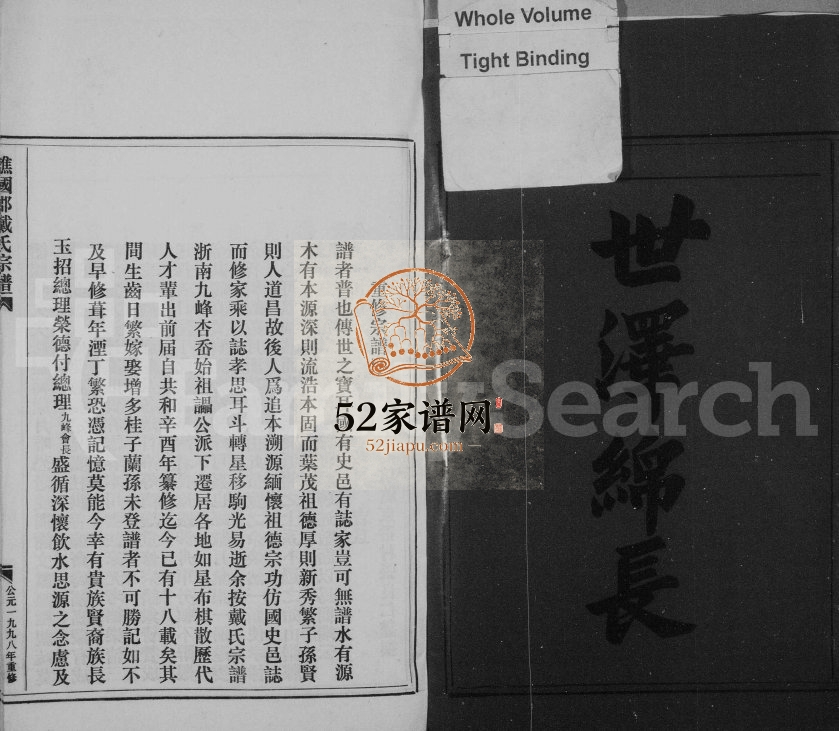 Whole Volume
Tight Binding
世澤綿長
重修宗譜
譜者普也傳世之寶也國有史邑有誌家豈可無譜水有源
木有本源深則流浩本固而葉茂祖德厚則新秀繁子孫賢
則人道昌故後人爲追本溯源緬懷祖德宗功仿國史邑誌
而修家乘以誌孝思耳斗轉星移駒光易逝余按戴氏宗譜
浙南九峰杏岙始祖譾公派下遷居各地如星布棋散歷代
人才輩出前届自共和辛酉年纂修迄今已有十八載矣其
間生齒日繁嫁娶增多桂子蘭孫未登譜者不可勝記如不
及早修葺年湮丁繁恐憑記憶莫能今幸有貴族賢裔族長
玉招總理榮德付總理九峰會長盛循深懷飲水思源之念慮及
譙國郡戴氏宗譜
公元一九九八年重修
FamilySearch
52家谱网
52jiapu.com